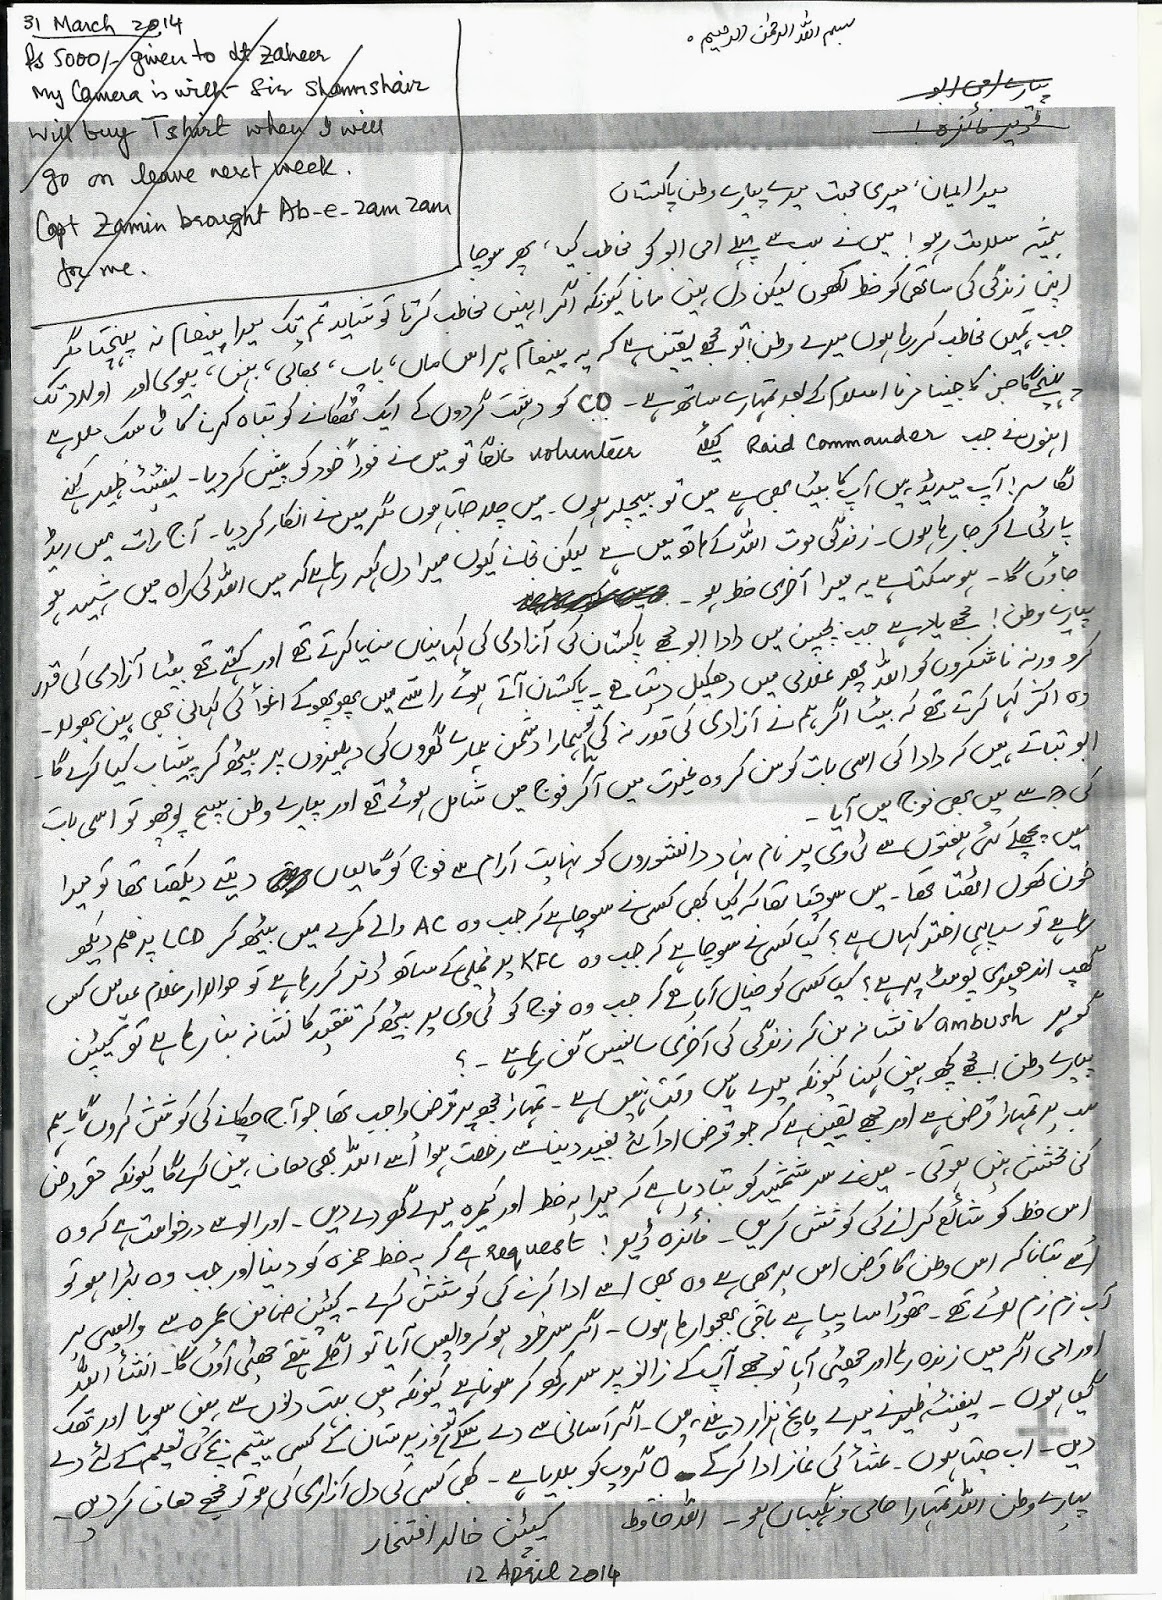 31 March 2014
Rs 5000/- given to Lt Zaheer
My Camera is with Sir Shamshair
Will buy T shirt when I will
go on leave next week.
Capt Zamin brought Ab-e-zam zam
for me.
بسم اللہ الرحمن الرحیم ۰
پیارے امی ابو
ڈئیر فائزہ !
میرا ایمان، میری محبت میرے پیارے وطن پاکستان
ہمیشہ سلامت رہو ! میں نے سب سے پہلے امی ابو کو مخاطب کیا، پھر سوچا
اپنی زندگی کی ساتھی کو خط لکھوں لیکن دل نہیں مانا کیونکہ اگر انہیں مخاطب کرتا تو شاید تم تک میرا پیغام نہ پہنچتا مگر
جب تمہیں مخاطب کر رہا ہوں میرے وطن! تو مجھے یقین ہے کہ یہ پیغام ہر اس ماں، باپ، بھائی، بہن، بیوی اور اولاد تک
پہنچے گا جن کا جینا مرنا اسلام کے بعد تمہارے ساتھ ہے۔ CO کو دہشت گردوں کے ایک ٹھکانے کو تباہ کرنے کا ٹاسک ملا ہے
انہوں نے جب Raid Commander کیلئے volunteer مانگا تو میں نے فوراً خود کو پیش کر دیا۔ لیفٹیننٹ ظہیر کہنے
لگا سر! آپ میریڈ ہیں آپ کا بیٹا بھی ہے میں تو بیچلر ہوں۔ میں چلا جاتا ہوں مگر میں نے انکار کر دیا۔ آج رات میں ریڈ
پارٹی لے کر جا رہا ہوں۔ زندگی موت اللہ کے ہاتھ میں ہے لیکن نجانے کیوں میرا دل کہہ رہا ہے کہ میں اللہ کی راہ میں شہید ہو
جاؤں گا۔ ہو سکتا ہے یہ میرا آخری خط ہو۔
پیارے وطن! مجھے یاد ہے جب بچپن میں دادا ابو مجھے پاکستان کی آزادی کی کہانیاں سنایا کرتے تھے اور کہتے تھے بیٹا آزادی کی قدر
کرو ورنہ ناشکروں کو اللہ پھر غلامی میں دھکیل دیتا ہے۔ پاکستان آتے ہوئے راستے میں پھوپھو کے اغوا کی کہانی بھی نہیں بھولا۔
وہ اکثر کہا کرتے تھے کہ بیٹا اگر ہم نے آزادی کی قدر نہ کی تو ہمارا دشمن ہمارے گھروں کی دہلیزوں پر بیٹھ کر پیشاب کیا کرے گا۔
ابو بتاتے ہیں کہ دادا کی اسی بات کو سن کر وہ غیرت میں آ کر فوج میں شامل ہوئے تھے اور پیارے وطن سچ پوچھو تو اسی بات
کی وجہ سے میں بھی فوج میں آیا۔
میں پچھلے کئی ہفتوں سے ٹی وی پر نام نہاد دانشوروں کو نہایت آرام سے فوج کو گالیاں دیتے دیکھتا تھا تو میرا
خون کھول اٹھتا تھا۔ میں سوچتا تھا کہ کیا کبھی کسی نے سوچا ہے کہ جب وہ AC والے کمرے میں بیٹھ کر LCD پر فلم دیکھ
رہا ہے تو سپاہی اختر کہاں ہے؟ کیا کسی نے سوچا ہے کہ جب وہ KFC پر فیملی کے ساتھ ڈنر کر رہا ہے تو حوالدار غلام عباس کس
گھپ اندھیری پوسٹ پر ہے؟ کیا کسی کو خیال آیا ہے کہ جب وہ فوج کو ٹی وی پر بیٹھ کر تنقید کا نشانہ بنا رہا ہے تو کیپٹن
گوہر ambush کا نشانہ بن کر زندگی کی آخری سانسیں گن رہا ہے۔؟
پیارے وطن! مجھے کچھ نہیں کہنا کیونکہ میرے پاس وقت نہیں ہے۔ تمہارا مجھ پر قرض واجب تھا جو آج چکانے کی کوشش کروں گا۔ ہم
سب پر تمہارا قرض ہے اور مجھے یقین ہے کہ جو قرض ادا کئے بغیر دنیا سے رخصت ہوا اُسے اللہ بھی معاف نہیں کرے گا کیونکہ مقروض
کی بخشش نہیں ہوتی۔ میں نے سر شمشیر کو بتا دیا ہے کہ میرا یہ خط اور کیمرہ میرے گھر دے دیں۔ اور ابو سے درخواست ہے کہ وہ
اس خط کو شائع کرانے کی کوشش کریں۔ فائزہ ڈئیر! request ہے کہ یہ خط حمزہ کو دینا اور جب وہ بڑا ہو تو
اُسے بتانا کہ اس وطن کا قرض اس پر بھی ہے وہ بھی اسے ادا کرنے کی کوشش کرے۔ کیپٹن ضامن عمرہ سے واپسی پر
آب زم زم لائے تھے۔ تھوڑا سا پیا ہے باقی بھجوا رہا ہوں۔ اگر سرخرو ہو کر واپس آیا تو اگلے ہفتے چھٹی آؤں گا۔ انشاء اللہ
اور امی اگر میں زندہ رہا اور چھٹی آیا تو مجھے آپ کے زانو پر سر رکھ کر سونا ہے کیونکہ میں بہت دنوں سے نہیں سویا اور تھک
گیا ہوں۔ لیفٹیننٹ ظہیر نے میرے پانچ ہزار دینے ہیں۔ اگر آسانی سے دے سکے تو وزیرستان کے کسی یتیم بچے کی تعلیم کے لئے دے
دیں۔ اب چلتا ہوں۔ عشاء کی نماز ادا کر کے O گروپ کو بلایا ہے۔ کبھی کسی کی دل آزاری کی ہو تو مجھے معاف کر دیں۔
پیارے وطن اللہ تمہارا حامی و نگہبان ہو۔ اللہ حافظ
کیپٹن خالد افتخار
12 April 2014